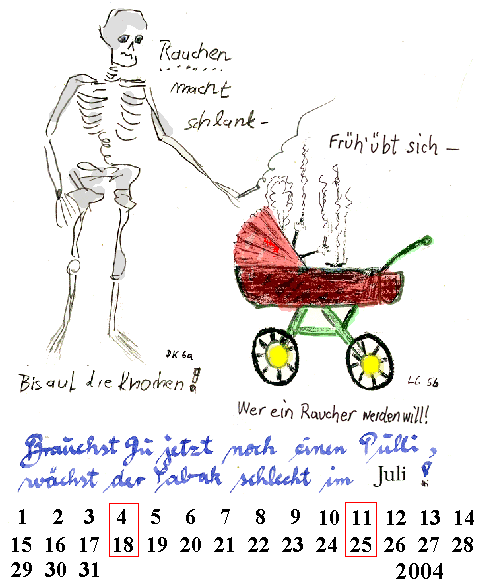 Rauchen
macht
schlank-
Früh' übt sich -
DK 6a
Bis auf die Knochen!
LG 5b
Wer ein Raucher werden will!
Brauchst Du jetzt noch einen Pulli,
wächst der Tabak schlecht im Juli!
1 2 3 4 5 6 7 8 9 10 11 12 13 14
15 16 17 18 19 20 21 22 23 24 25 26 27 28
29 30 31 2004